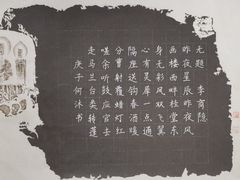 无题 李商隐
昨夜星辰昨夜风
画楼西畔桂堂东
身无彩凤双飞翼
心有灵犀一点通
隔座送钩春酒暖
分曹射覆蜡灯红
嗟余听鼓应官去
走马兰台类转蓬
庚子何沐书